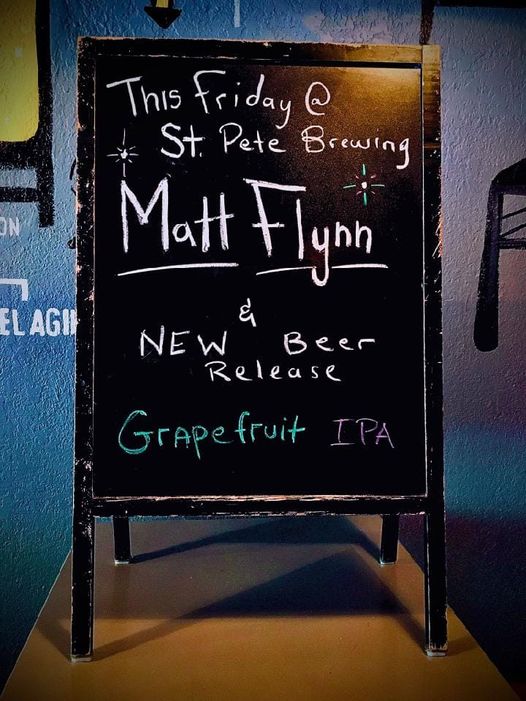 This Friday @
St. Pete Brewing
Matt Flynn
&
NEW Beer
Release
Grapefruit IPA
ON
EL AGI